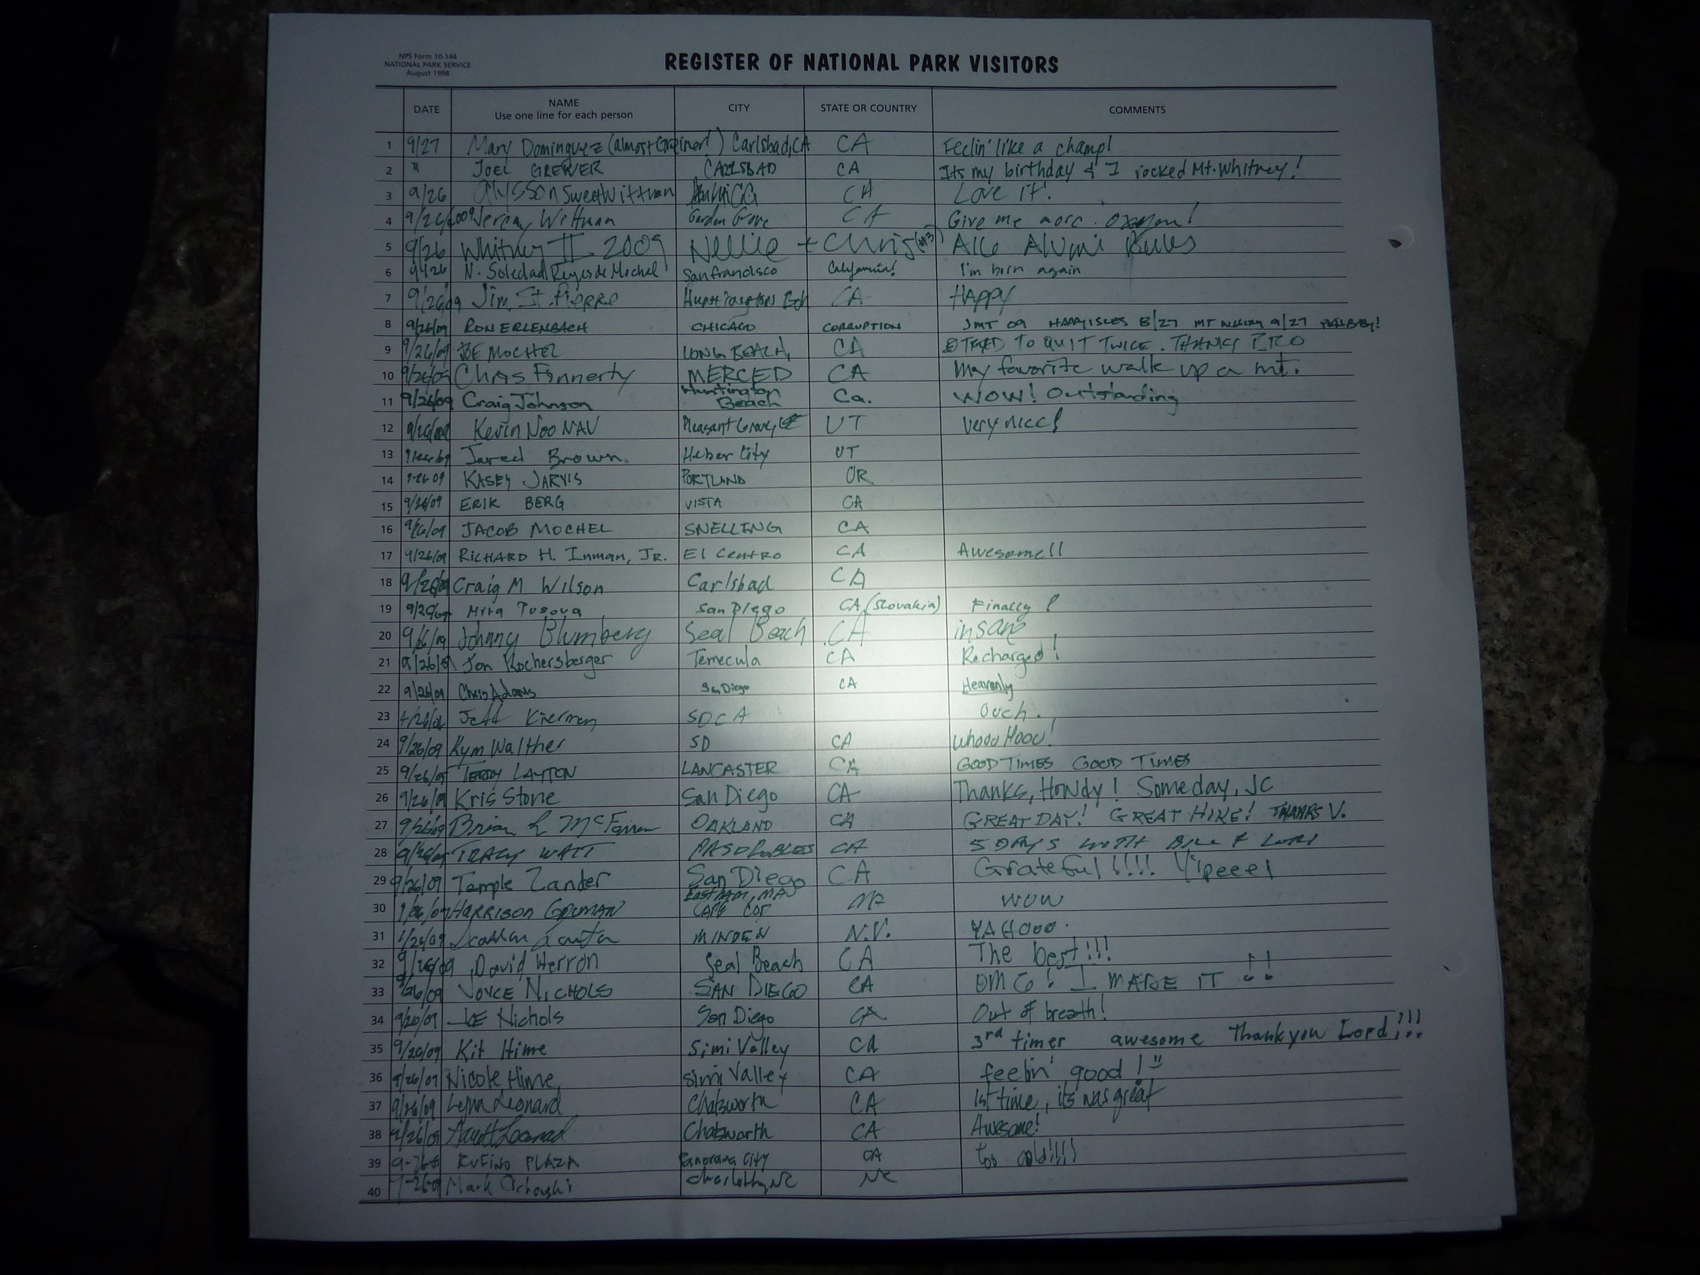 NPS Form 10-144
NATIONAL PARK SERVICE
August 1998
REGISTER OF NATIONAL PARK VISITORS
DATE NAME CITY STATE OR COUNTRY COMMENTS
Use one line for each person
1 9/27 Mary Dominguez (almost ) Carlsbad, CA CA Feelin' like a champ!
2 " JOEL GREWER CARLSBAD CA Its my birthday & I rocked Mt. Whitney!
3 9/26 Sweet Wittman CA Love it!
4 Wittman Garden Grove CA Give me more
5 9/26 Whitney II 2009 Nellie + Chris Rules
6 9/26 N. Soledad Reyes de Mochel San Francisco California! I'm born again
7 9/26/09 Jim St. Pierre CA HAPPY
8 9/26/09 RON ERLENBACH CHICAGO CORRUPTION JMT 09 HAPPY ISLES 8/27 MT 9/27
9 9/26/09 JOE MOCHEL LONG BEACH, CA TRIED TO QUIT TWICE. THANKS
10 9/26/09 Chris Finnerty MERCED CA My favorite walk up a mt.
11 9/26/09 Craig Johnson Huntington Beach Ca. WOW! Outstanding
12 9/26/09 Kevin Noonan Pleasant Grove UT Very nice!
13 Jared Brown. Heber City UT
14 9-26-09 KASEY JARVIS PORTLAND OR
15 9/26/09 ERIK BERG VISTA CA
16 9/26/09 JACOB MOCHEL SNELLING CA
17 9/26/09 RICHARD H. Inman, JR. El CENTRO CA Awesome!!
18 9/26/09 Craig M Wilson Carlsbad CA
19 San Diego CA (Slovakia) Finally!
20 9/26/09 Johnny Blumberg Seal Beach CA insane
21 9/26/09 Jon Rochersberger Temecula CA Recharged!
22 9/26/09 Chris Adams San Diego CA Heavenly
23 Jeff SD CA Ouch.
24 9/26/09 Kym Walther SD CA Whooo Hooo!
25 9/26/09 TERRY LAYTON LANCASTER CA GOOD TIMES GOOD TIMES
26 9/26/09 Kris Stone San Diego CA Thanks, Howdy! Someday, JC
27 9/26/09 Brian OAKLAND CA GREAT DAY! GREAT HIKE! THANKS V.
28 9/26/09 TRACY WATT PASO ROBLES CA 5 DAYS WITH
29 9/26/09 Temple Zander San Diego CA Grateful!!!! Yipeee!
30 HARRISON EASTHAM, MA CAPE COD MA WOW
31 MINDEN N.V. YAHOOO.
32 9/26/09 David Herron Seal Beach CA The best!!!
33 9/26/09 JOYCE NICHOLS SAN DIEGO CA OMG! I MADE IT!!
34 9/26/09 JOE Nichols San Diego CA Out of breath!
35 9/26/09 Kit Hime Simi Valley CA 3rd timer awesome Thank you Lord!!!
36 9/26/09 Nicole Hime Simi Valley CA feelin' good!
37 9/26/09 Lynn Leonard Chatsworth CA 1st time, its was great
38 9/26/09 Leonard Chatsworth CA Awesome!
39 RUFINO PLAZA Panorama City CA Too cold!!!!
40 Mark Charlotte, NC NC